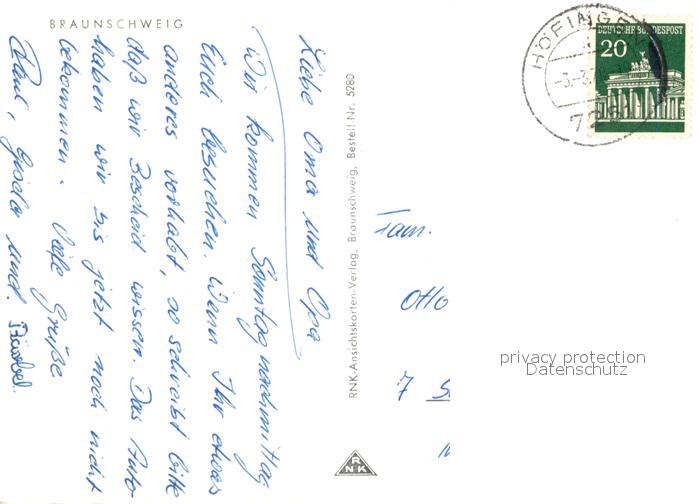 BRAUNSCHWEIG
Liebe Oma und Opa
Wir kommen Sonntag nachmittag
Euch besuchen. Wenn Ihr etwas
anderes vorhabt, so schreibt bitte
daß wir Bescheid wissen. Das Auto
haben wir bis jetzt noch nicht
bekommen. Viele Grüße
Paul, Gisela und Bärbel.
RNK-Ansichtskarten-Verlag, Braunschweig, Bestell Nr. 5280
RNK
HÖFINGEN
DEUTSCHE BUNDESPOST
20
Fam.
Otto
7
privacy protection
Datenschutz